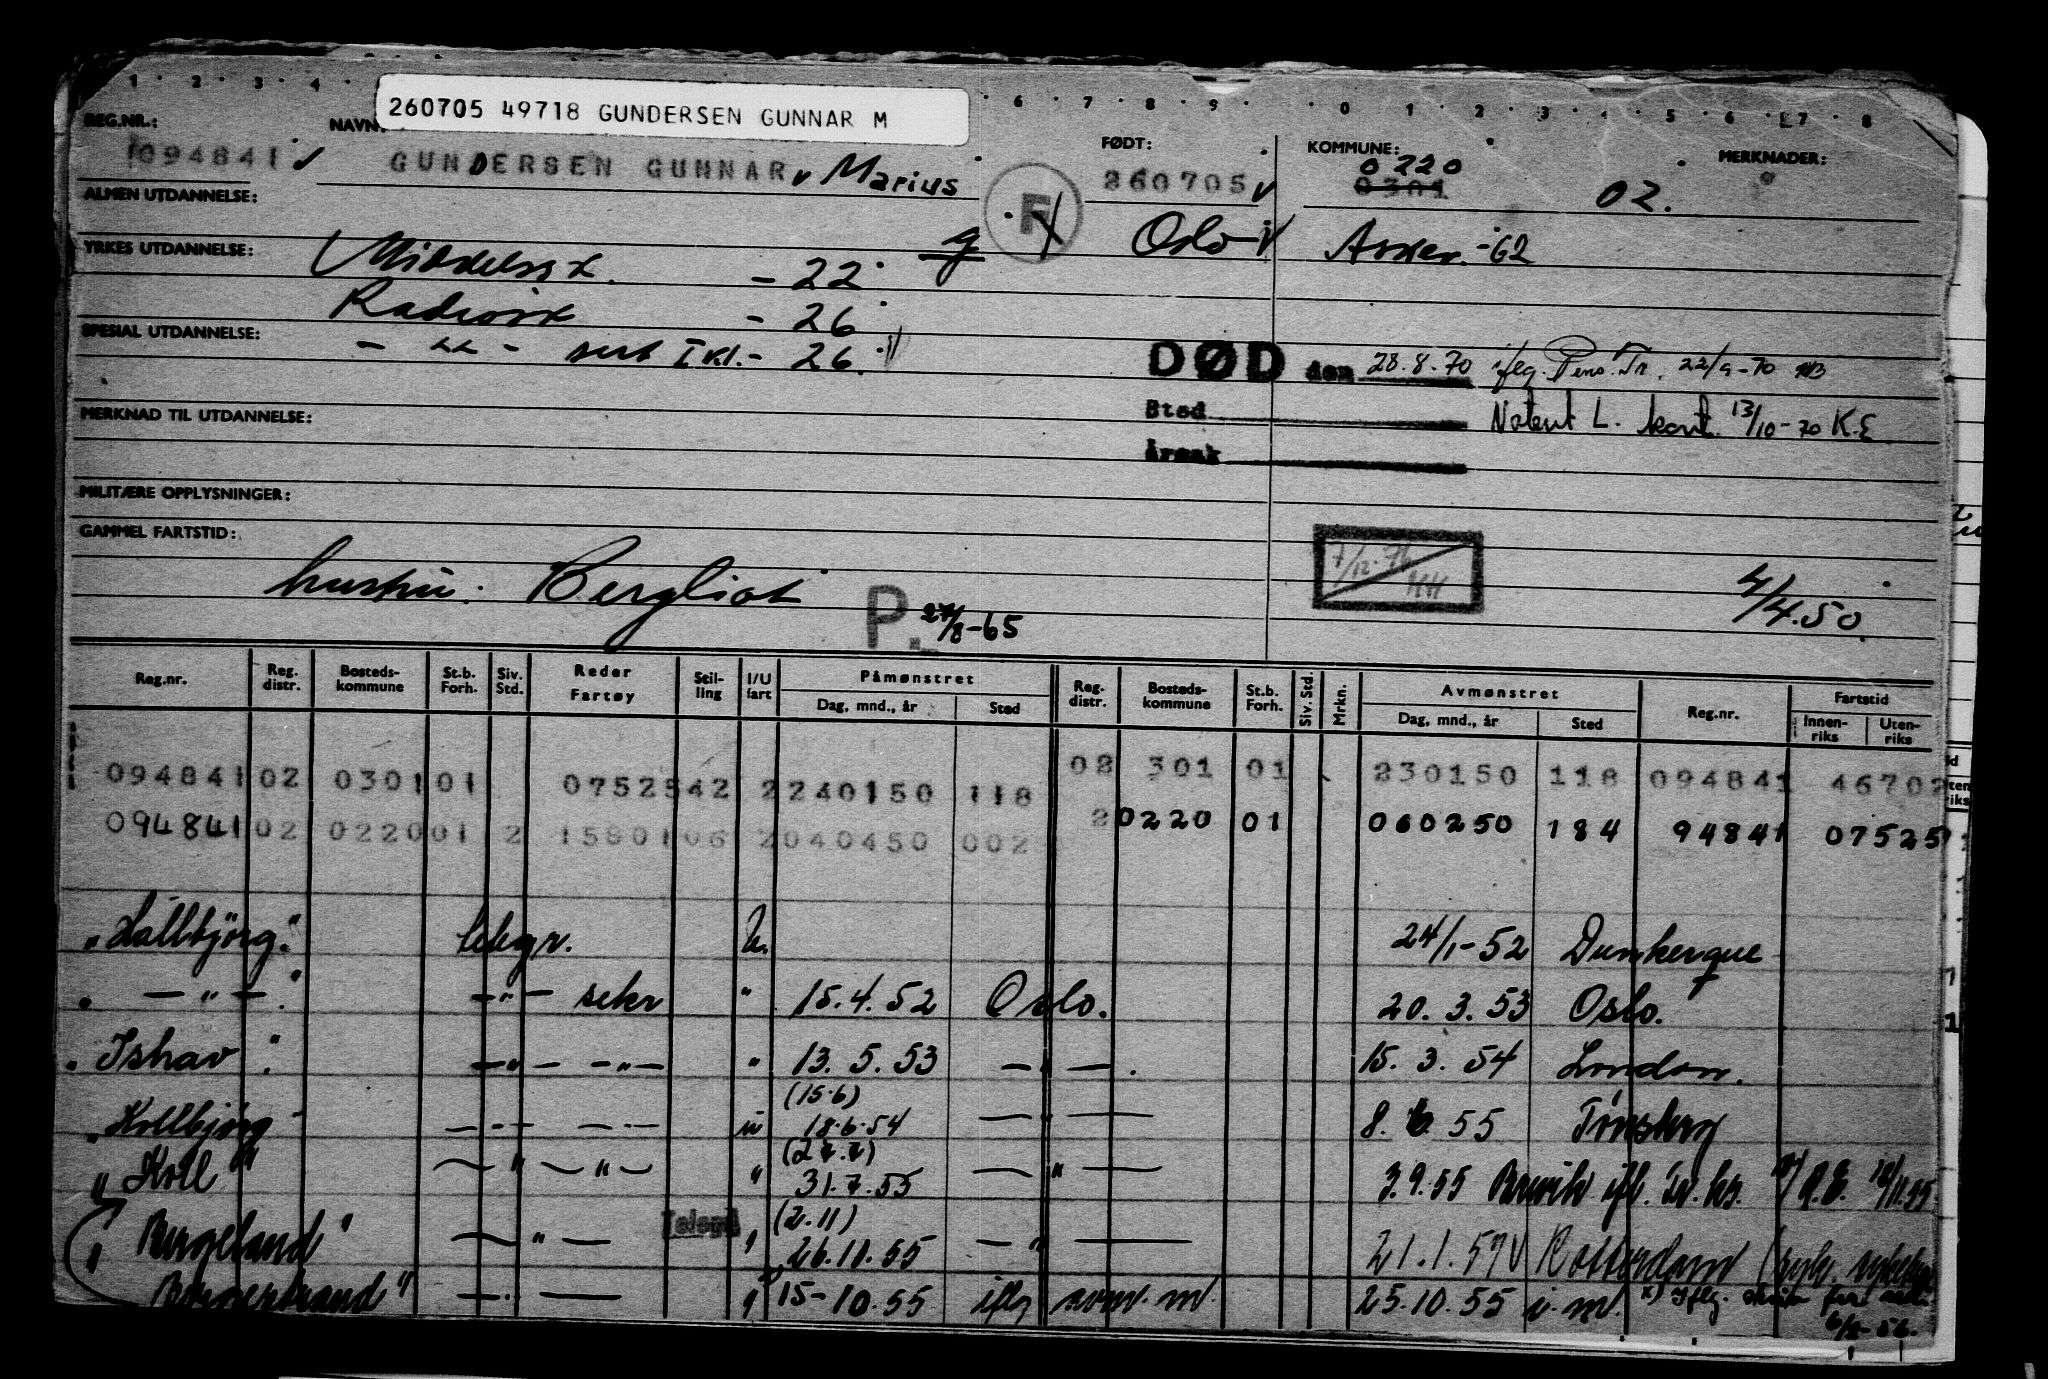 1 2 3 4 6 7 8 9 0 1 2 3 4 5 6 7 8
260705 49718 GUNDERSEN GUNNAR M
REG.NR.: NAVN: FØDT: KOMMUNE: MERKNADER:
094841 GUNDERSEN GUNNAR Marius F 260705 0220 0301 02.
ALMEN UTDANNELSE: Oslo Asker -62
YRKES UTDANNELSE: Middelssk. - 22
Radiosk - 26
SPESIAL UTDANNELSE: - " - sert I kl. - 26.
DØD den 28.8.70 iflg. Pens. Tr. 22/9-70
Sted Notert L. kort. 13/10-70 K.E
Årsak
MERKNAD TIL UTDANNELSE:
MILITÆRE OPPLYSNINGER:
GAMMEL FARTSTID:
7/12-76 HH
hustru: Bergliot P. 27/8-65 4/4.50.
Reg.nr. Reg. distr. Bosteds-kommune St.b. Forh. Siv. Std. Reder Fartøy Stil-ling I/U fart Påmønstret Dag, mnd., år Sted Reg. distr. Bosteds-kommune St.b. Forh. Siv. Std. Mrkn. Avmønstret Dag, mnd., år Sted Reg.nr. Fartstid Innen-riks Uten-riks
094841 02 0301 01 0752542 2 240150 118 02 301 01 230150 118 094841 46702
094841 02 0220 01 2 1580106 2 040450 002 2 0220 01 060250 184 94841 07525
telegr. U. 24/1-52 Dunkerque
" — " — " — " — sekr " 15.4.52 Oslo. 20.3.53 Oslo.
"Ishav" — " — — " — " 13.5.53 — " — . 15.3.54 London.
(15.6)
"Kollbjørg" — " — — " — 18.6.54 — " — 8.6.55 Tønsberg
(27.7)
"Koll" — " — — " — " 31.7.55 — " — 3.9.55 ifl. 12/11.55
(2.11)
" Bergeland" — " — " 26.11.55 — " — 21.1.57 Rotterdam
— " — " 15-10.55 iflg avm. m. 25.10.55 i. m. x) Iflg.